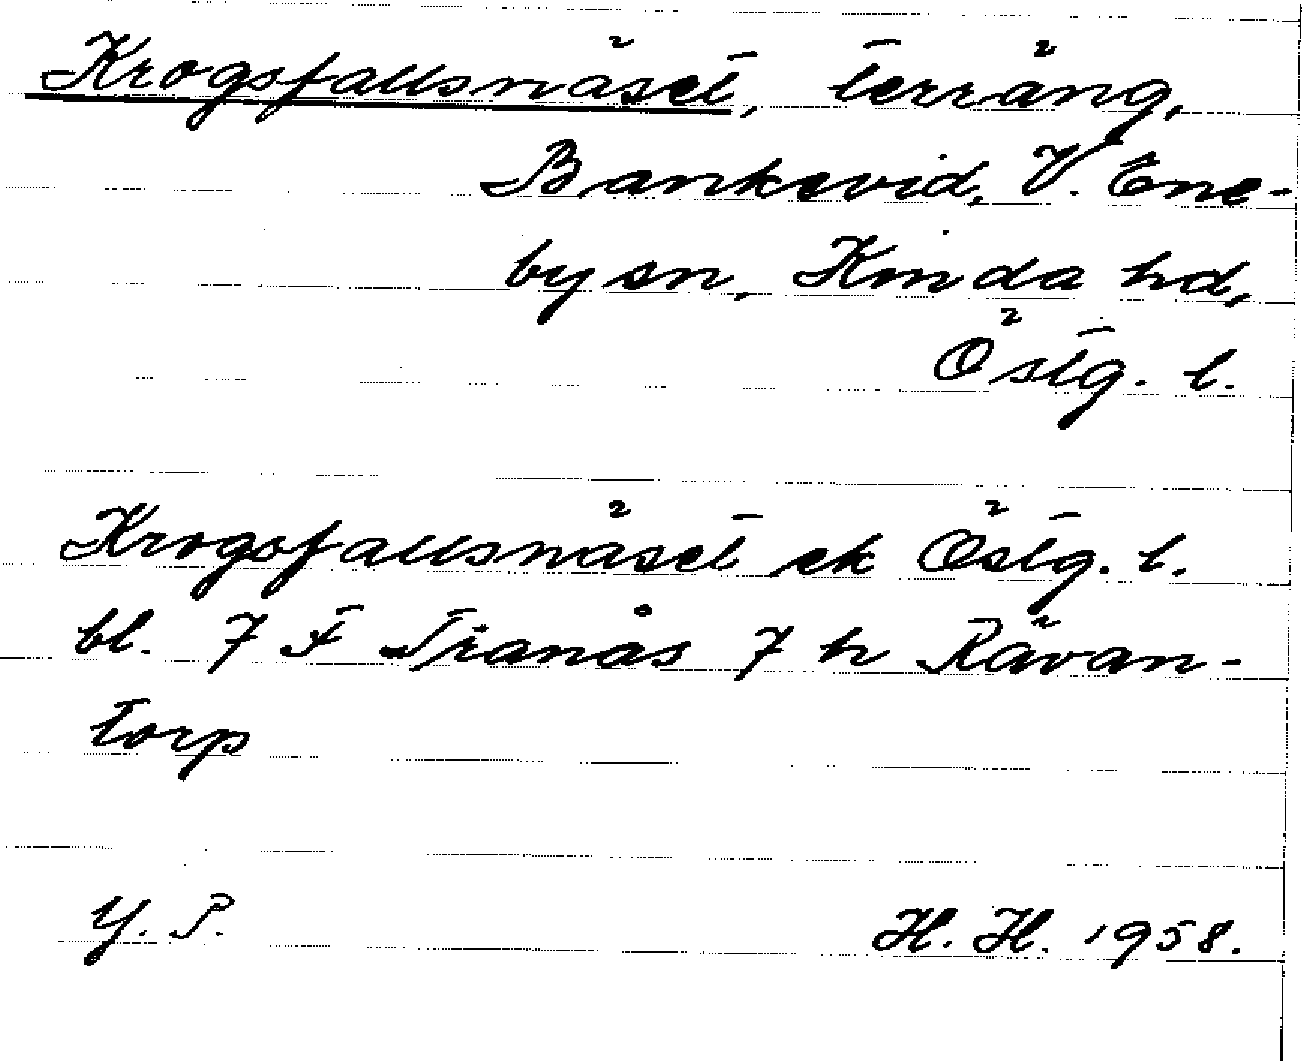 Krogsfallsnäset, terräng,
Bankevid, V. Ene-
by sn, Kinda hd,
Östg. l.
Krogsfallsnäset ek Östg. l.
bl. 7 F Tranås 7 h Rävan-
torp
Y. P. H. H. 1958.